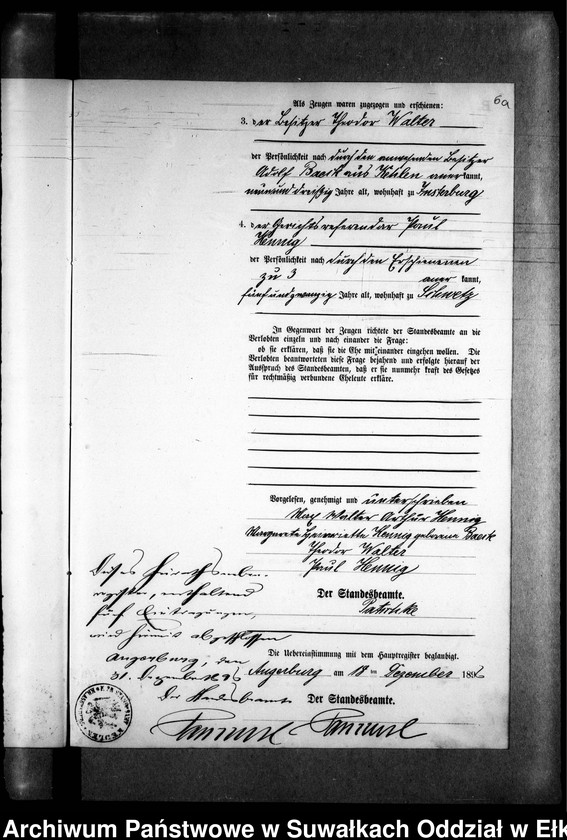 6a
Als Zeugen waren zugezogen und erschienen:
3. der Besitzer Theodor Walter
der Persönlichkeit nach durch den anwesenden Besitzer
Adolf Baeck aus Kehlen anerkannt,
neununddreißig Jahre alt, wohnhaft zu Insterburg
4. der Gerichtsreferendar Paul
Hennig
der Persönlichkeit nach durch den Erschienenen
zu 3 anerkannt,
fünfundzwanzig Jahre alt, wohnhaft zu Schwetz
In Gegenwart der Zeugen richtete der Standesbeamte an die
Verlobten einzeln und nach einander die Frage:
ob sie erklären, daß sie die Ehe mit einander eingehen wollen. Die
Verlobten beantworteten diese Frage bejahend und erfolgte hierauf der
Ausspruch des Standesbeamten, daß er sie nunmehr kraft des Gesetzes
für rechtmäßig verbundene Eheleute erkläre.
Vorgelesen, genehmigt und unterschrieben
Max Walter Arthur Hennig
Margarete Henriette Hennig geborene Baeck
Theodor Walter
Paul Hennig
Der Standesbeamte.
Dieses Heiraths-Neben-
register, enthaltend
fünf Eintragungen,
wird hiermit abgeschlossen
Angerburg, den
31. Dezember 1896
Der Standesbeamte
Die Uebereinstimmung mit dem Hauptregister beglaubigt.
Angerburg am 18 ten Dezember 1896
Der Standesbeamte.
Archiwum Państwowe w Suwałkach Oddział w Ełk